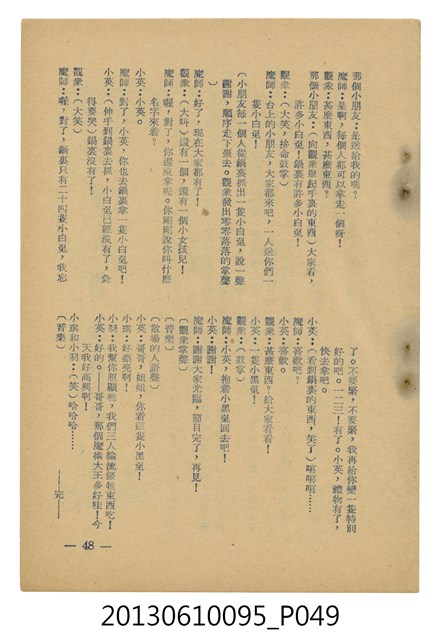 那個小朋友：是送給我的嗎？
魔師：是啊，每個人都可以拿走一個呀！
觀衆：甚麼東西，甚麼東西？
那個小朋友：（向觀衆舉起手裏的東西）大家看，
許多小白兎！鍋裏有許多小白兎！
觀衆：（大笑，拚命鼓掌）
魔師：台上的小朋友，大家都來吧，一人送你們一
隻小白兎！
（小朋友每一個人從鍋裏抓出一隻小白兎，說一聲
謝謝，順序走下臺去。觀衆發出零零落落的掌聲
）
魔師：好了，現在大家都有了！
觀衆：（大叫）還有一個，還有一個小女孩兒！
魔師：喔，對了，你還沒拿吧。你剛剛說你叫什麼
名字來着？
小英：小英。
魔師：對了，小英，你也去鍋裏拿一隻小白兎吧！
小英：（伸手到鍋裏去抓，小白兎已經沒有了，急
得要哭）鍋裏沒有了！
觀衆：（大笑）
魔師：喔，對了，鍋裏只有二十四隻小白兎，我忘
了。不要緊，不要緊，我再給你變一隻特別
好的吧。一二三！有了。小英，禮物有了，
快去拿吧。
小英：（看到鍋裏的東西，笑了）嘻嘻嘻……
魔師：喜歡吧？
小英：喜歡。
觀衆：甚麼東西？給大家看看！
小英：一隻小黑兎！
觀衆：（鼓掌）
魔師：小英，抱着小黑兎回去吧！
小英：謝謝！
魔師：謝謝大家光臨，節目完了，再見！
（觀衆掌聲）
（音樂）
（散場的人語聲）
小英：哥哥，姐姐，你看這隻小黑兎！
小琪：好漂亮啊！
小羽：我幫你照顧牠，我們三人輪流餵牠東西吃！
小英：好的。——哥哥，那個魔術大王多好哇！今
天我好高興啊！
小琪和小羽：（笑）哈哈哈……
（音樂）
——完——
— 48 —
20130610095_P049